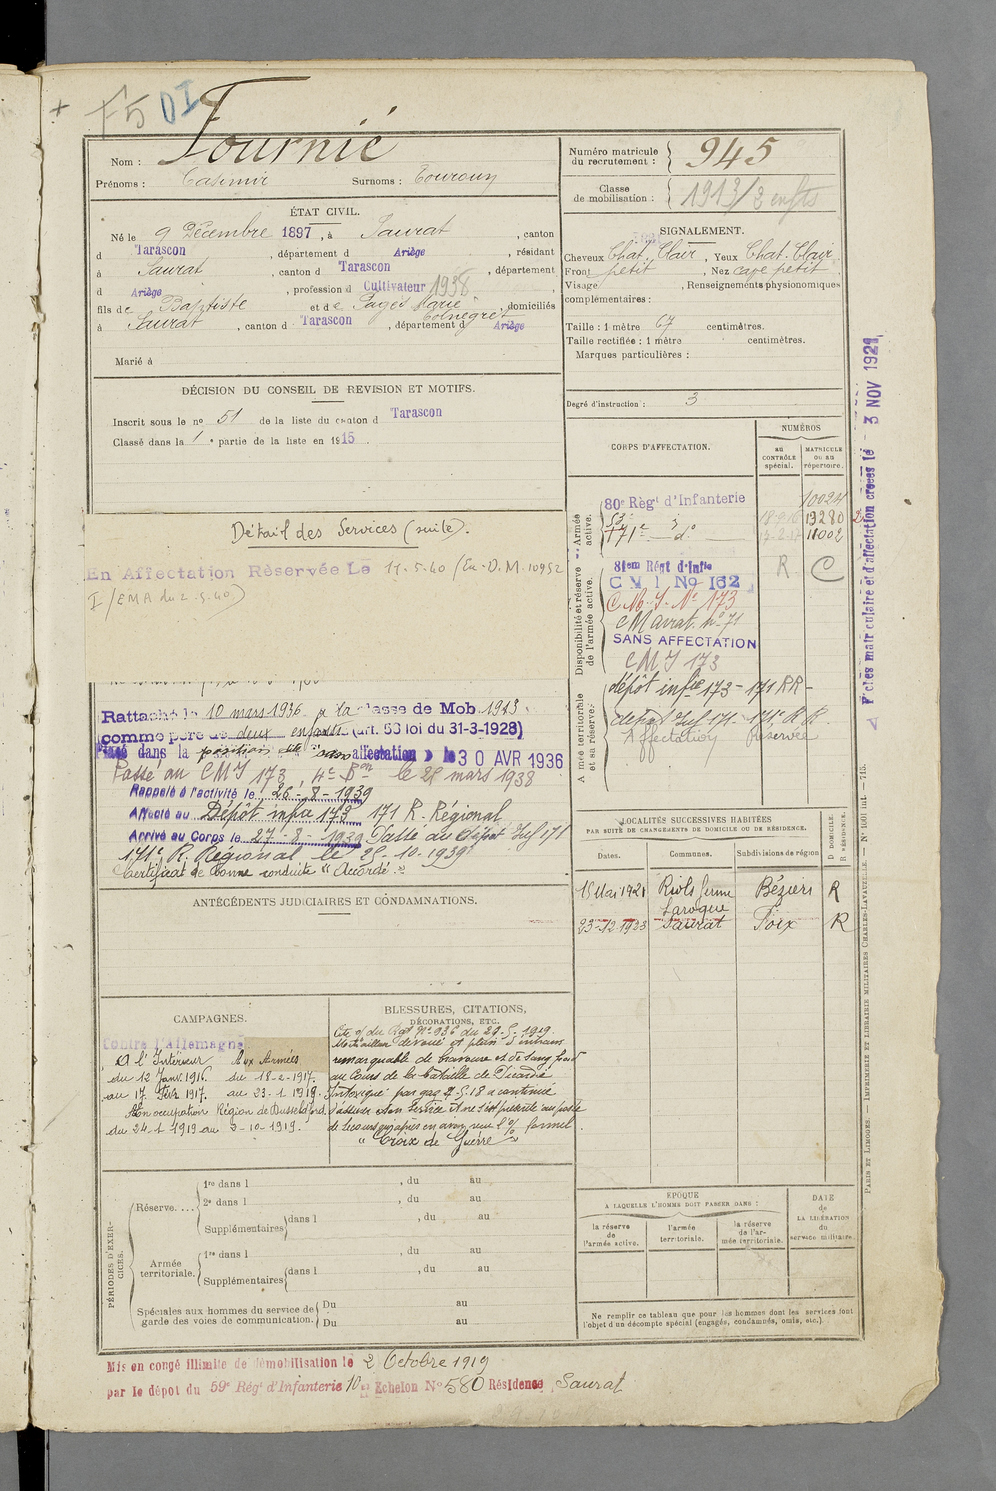 + F5 DI
Nom : Fournié
Prénoms : Casimir Surnoms :
ÉTAT CIVIL.
Né le 9 Décembre 1897, à Saurat, canton
d Tarascon, département d Ariège, résidant
à Saurat, canton d Tarascon, département
d Ariège, profession d Cultivateur 1938
fils de Baptiste et de Pagès Marie, domiciliés
à Saurat, canton d Tarascon, département d Ariège
Marié à
DÉCISION DU CONSEIL DE REVISION ET MOTIFS.
Inscrit sous le no 51 de la liste du canton d Tarascon
Classé dans la 1e partie de la liste en 1915.
Détail des Services (suite).
En Affectation Réservée Le 11-5-40 (En. D.M. 10952
I/EMA du 2-5-40)
Rattaché le 10 mars 1936 à la classe de Mob. 1913
comme père de deux enfants (art. 58 loi du 31-3-1928)
Placé dans la position de "sans affectation" le 30 AVR 1936
Passé au CMI 173, 4e Bon le 25 mars 1938
Rappelé à l'activité le 26-8-1939
Affecté au Dépôt infie 173 171 R. Régional
Arrivé au Corps le 27-8-1939 Passé au dépôt Inf 171
171e R. Régional le 25-10-1939
Certificat de bonne conduite "Accordé."
ANTÉCÉDENTS JUDICIAIRES ET CONDAMNATIONS.
CAMPAGNES.
Contre l'Allemagne
A l'Intérieur Aux Armées
du 12 Janv. 1916. du 18-2-1917.
au 17 Févr. 1917. au 23-1-1919.
En occupation Région de Dusseldford.
du 24-1-1919 au 2-10-1919.
BLESSURES, CITATIONS,
DÉCORATIONS, ETC.
Cité o/ du Régt No 936 du 29-5-1919.
Mitrailleur dévoué et plein d'entrain
remarquable de bravoure et de sang froid
au cours de la bataille de Picardie
Intoxiqué par gaz 5-18 a continué
d'assurer son service et ne s'est présenté au poste
de secours qu'après en avoir reçu l'o/ formel.
"Croix de Guerre"
PÉRIODES D'EXERCICES.
Réserve....
1re dans l , du au
2e dans l , du au
Supplémentaires dans l , du au
Armée territoriale.
1re dans l , du au
Supplémentaires dans l , du au
Spéciales aux hommes du service de Du au
garde des voies de communication. Du au
Mis en congé illimité de démobilisation le 2 Octobre 1919
par le dépôt du 59e Régt d'Infanterie 10e Echelon No 580 Résidence Saurat
Numéro matricule
du recrutement : 945
Classe
de mobilisation : 1913/2 enfts
SIGNALEMENT.
Cheveux Chat. Clair, Yeux Chat. Clair
Front petit, Nez cave petit
Visage , Renseignements physionomiques
complémentaires :
Taille : 1 mètre 67 centimètres.
Taille rectifiée : 1 mètre centimètres.
Marques particulières :
Degré d'instruction : 3
CORPS D'AFFECTATION.
NUMÉROS
au CONTRÔLE spécial.
MATRICULE ou au répertoire.
Armée active.
80e Régt d'Infanterie 10024
53e do 13280
171e do 11002
Disponibilité et réserve de l'armée active.
81em Régt d'Infie R C
C M I No 162
C.M.I. No 173
CM aurat. no 71
SANS AFFECTATION
CMI 173
Armée territoriale et sa réserve.
dépôt infie 173 - 171 RR -
dépôt Inf 171 - 171e R.R.
Affectation Réservée
LOCALITÉS SUCCESSIVES HABITÉES
PAR SUITE DE CHANGEMENTS DE DOMICILE OU DE RÉSIDENCE.
Dates. Communes. Subdivisions de région D DOMICILE. R RÉSIDENCE.
15 Mai 1921 Riols ferme Béziers R
Laroque
23-12-1923 Saurat Foix R
ÉPOQUE
A LAQUELLE L'HOMME DOIT PASSER DANS :
la réserve de l'armée active.
l'armée territoriale.
la réserve de l'armée territoriale.
DATE de LA LIBÉRATION du service militaire.
Ne remplir ce tableau que pour les hommes dont les services font
l'objet d'un décompte spécial (engagés, condamnés, omis, etc.).
Fiches matriculaire et d'affectation créées le 3 NOV 1921
PARIS ET LIMOGES. — IMPRIMERIE ET LIBRAIRIE MILITAIRES CHARLES-LAVAUZELLE. — No 1601 int. — 715.